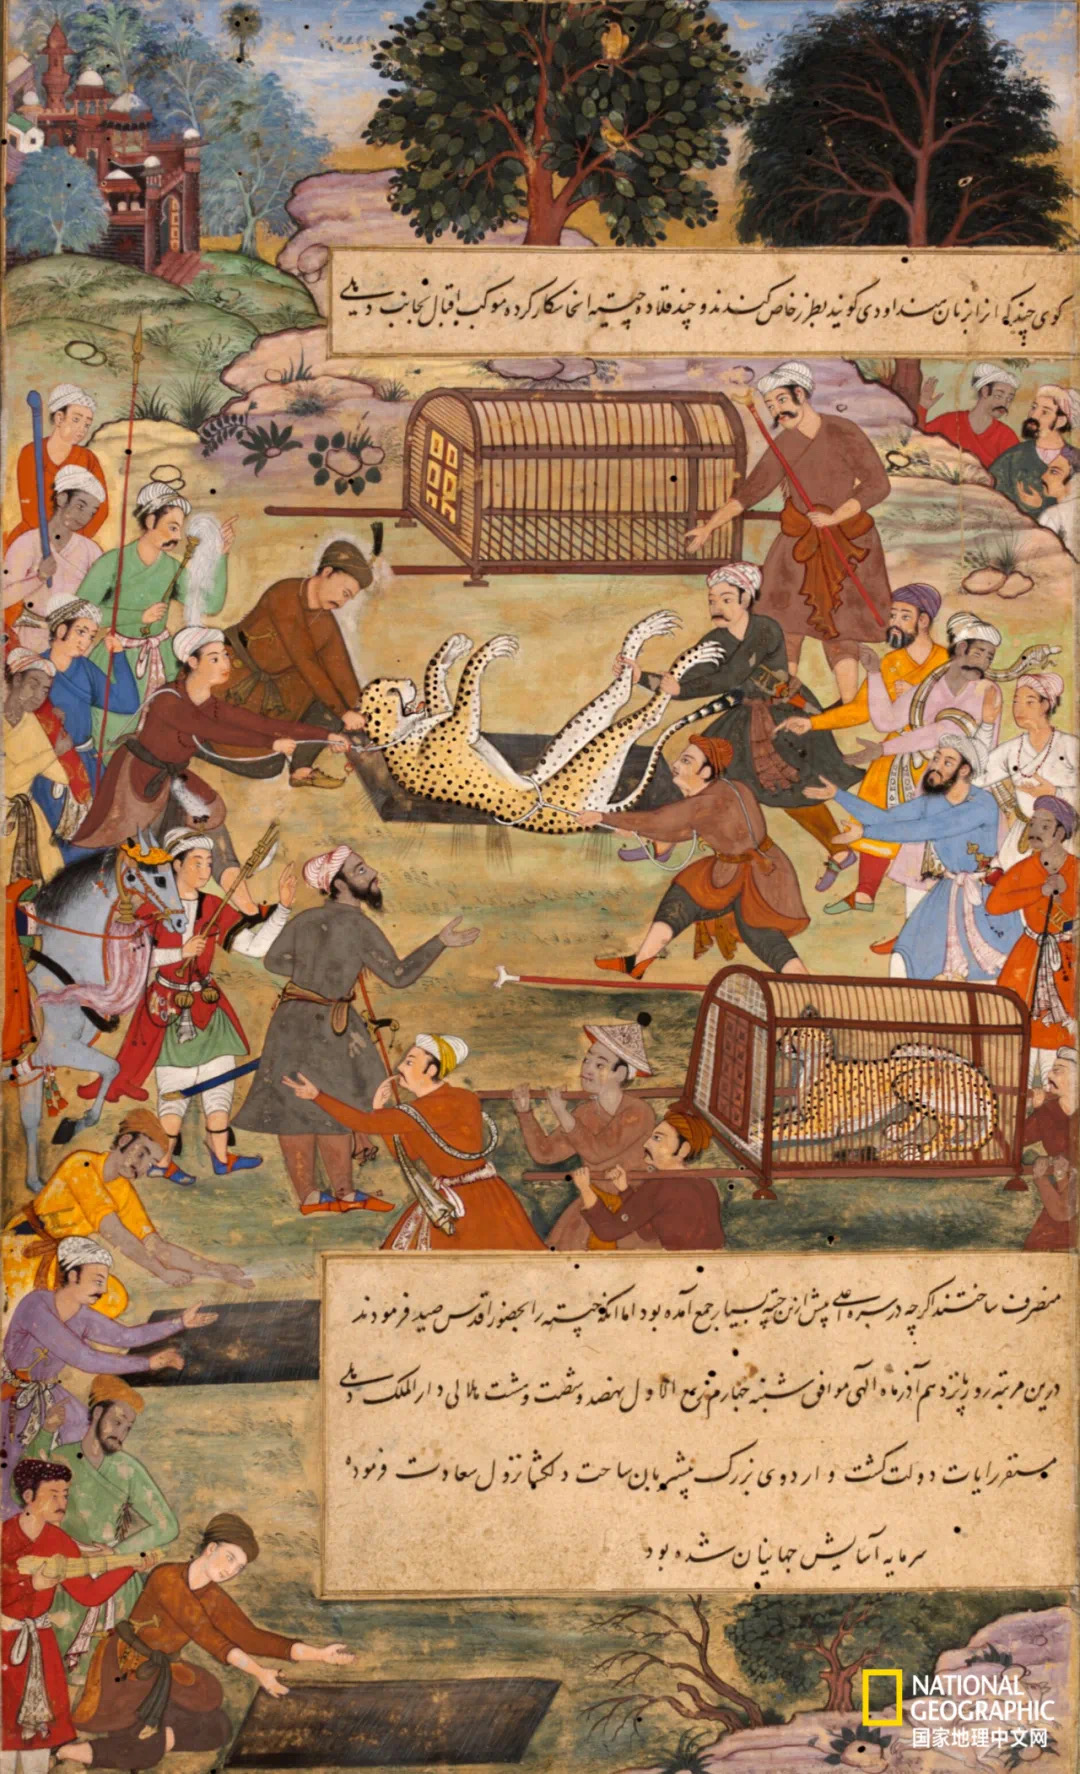 کوی چند که از ابزبان هند اودی گویند بطرز خاص کندند و چند قلاده چیته انجا شکار کرده موکب اقبال بجانب دهلی
منصرف ساختند اگرچه در سرکار اعلی پیش ازین چیته بسیار جمع آمده بود اما انکه چیته را بحضور اقدس صید فرمودند
درین مرتبه روز پانزدهم آذرماه الهی موافق شنبه چهارم ربیع الاول نهصد و شصت و هشت هلالی دارالملک دهلی
مستقر رایات دولت گشت و اردوی بزرگ پیشتر بان ساحت دلکشا نزول سعادت فرموده
سرمایه آسایش جهانیان شده بود
NATIONAL
GEOGRAPHIC
国家地理中文网